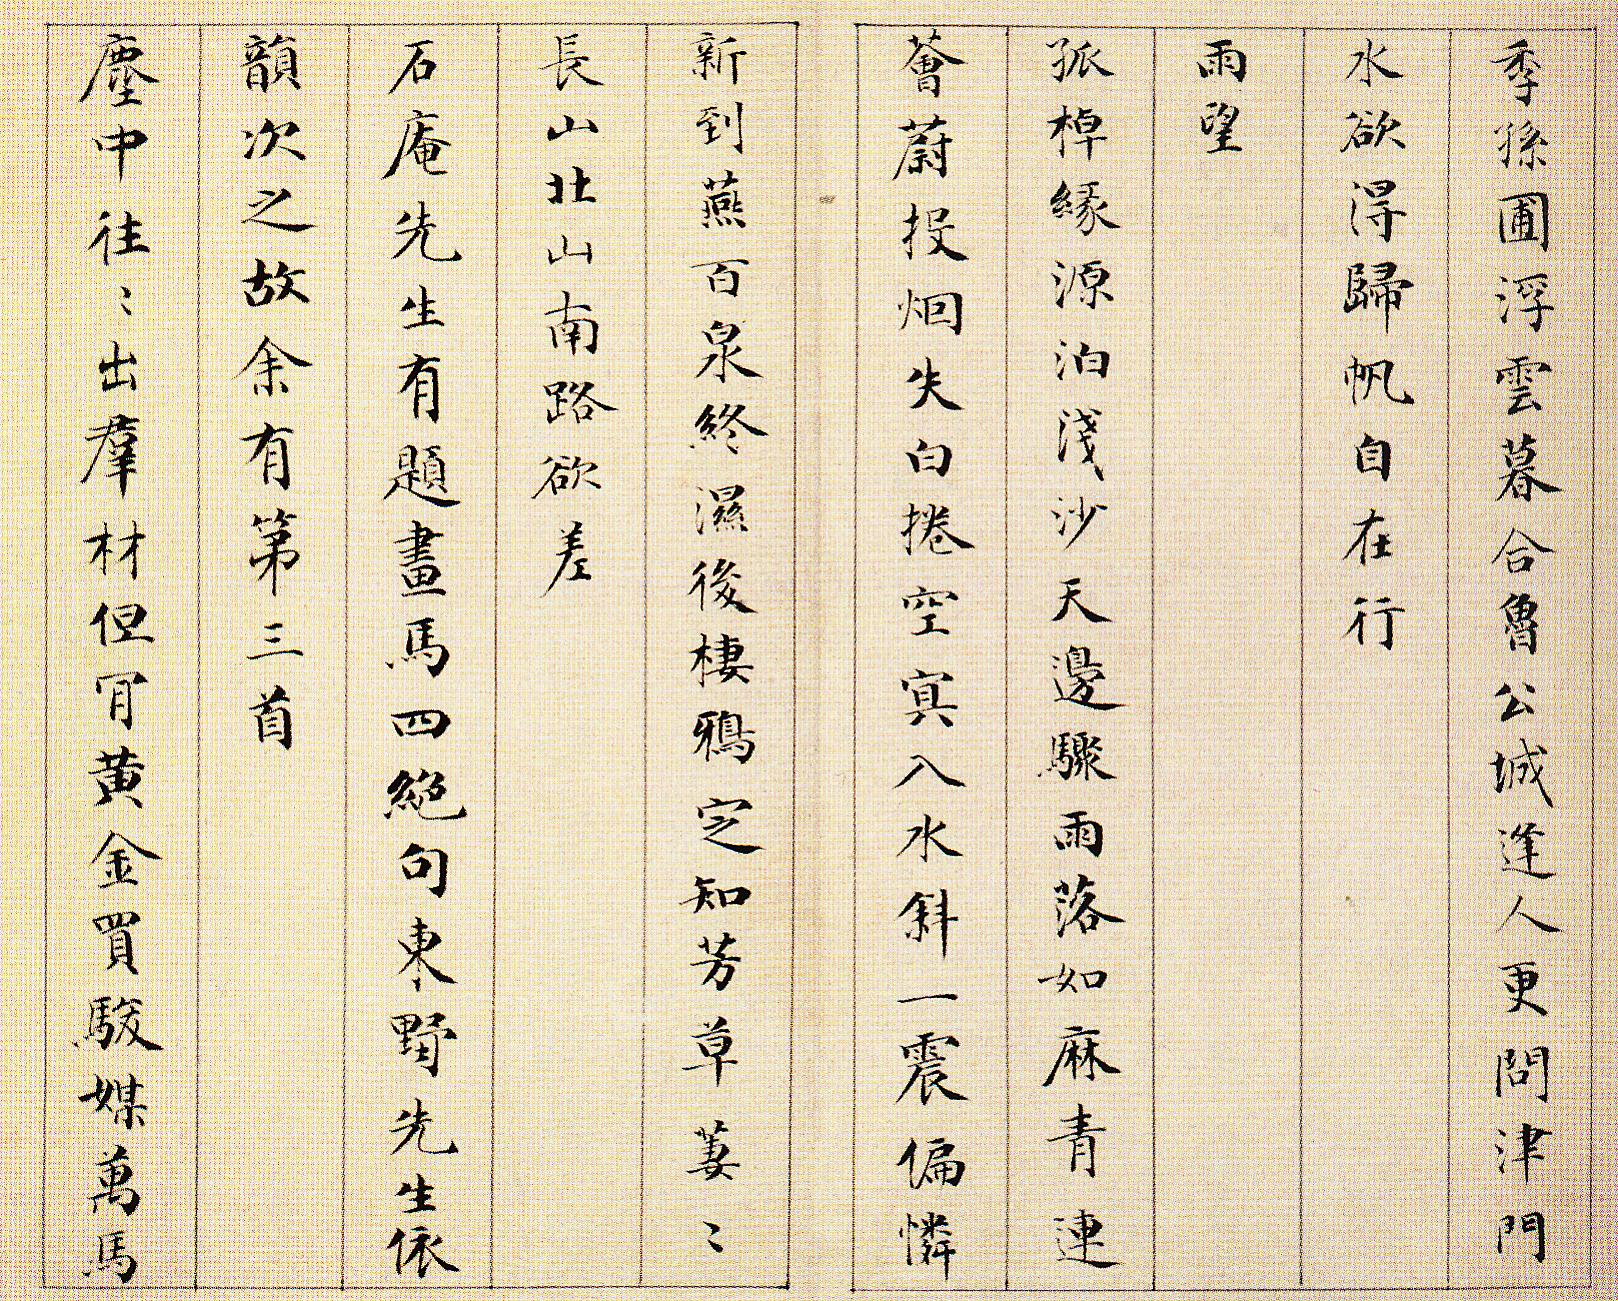 季孫圃浮雲暮合魯公城逢人更問津門
水欲淂歸帆自在行
雨望
孤棹緣源泊淺沙天邊驟雨落如麻青連
薈蔚投烟失白捲空冥入水斜一震偏憐
新到燕百泉終濕後棲鴉定知芳草萋〻
長山北山南路欲差
石庵先生有題畫馬四絕句東野先生依
韻次之故余有第三首
塵中往〻出羣材但肎黃金買駿媒萬馬